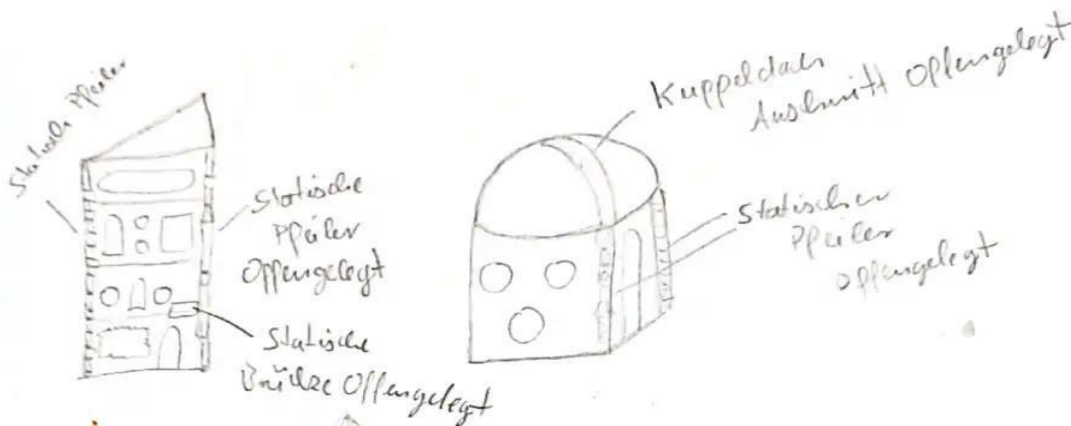 Statische Pfeiler
Statische
Pfeiler
Offengelegt
Statische
Brücke Offengelegt
Kuppeldach
Ausschnitt Offengelegt
Statischer
Pfeiler
offengelegt